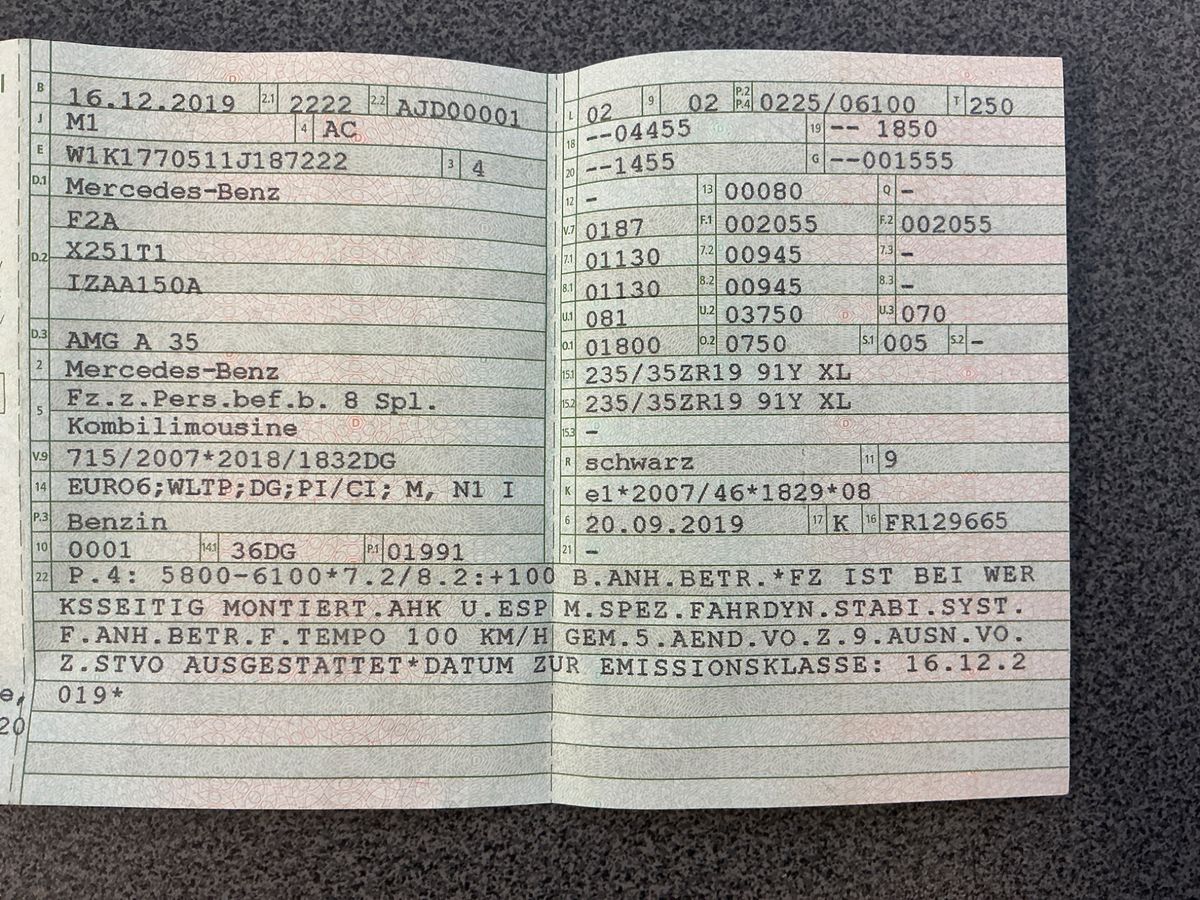 B 16.12.2019 2.1 2222 2.2 AJD00001
J M1 4 AC
E W1K1770511J187222 3 4
D.1 Mercedes-Benz
F2A
D.2 X251T1
IZAA150A
D.3 AMG A 35
2 Mercedes-Benz
5 Fz.z.Pers.bef.b. 8 Spl.
Kombilimousine
V.9 715/2007*2018/1832DG
14 EURO6;WLTP;DG;PI/CI; M, N1 I
P.3 Benzin
10 0001 14.1 36DG P.1 01991
L 02 9 02 P.2 P.4 0225/06100 T 250
18 --04455 19 -- 1850
20 --1455 G --001555
12 - 13 00080 Q -
V.7 0187 F.1 002055 F.2 002055
7.1 01130 7.2 00945 7.3 -
8.1 01130 8.2 00945 8.3 -
U.1 081 U.2 03750 U.3 070
O.1 01800 O.2 0750 S.1 005 S.2 -
15.1 235/35ZR19 91Y XL
15.2 235/35ZR19 91Y XL
15.3 -
R schwarz 11 9
K e1*2007/46*1829*08
6 20.09.2019 17 K 16 FR129665
21 -
22 P.4: 5800-6100*7.2/8.2:+100 B.ANH.BETR.*FZ IST BEI WER
KSSEITIG MONTIERT.AHK U.ESP M.SPEZ.FAHRDYN.STABI.SYST.
F.ANH.BETR.F.TEMPO 100 KM/H GEM.5.AEND.VO.Z.9.AUSN.VO.
Z.STVO AUSGESTATTET*DATUM ZUR EMISSIONSKLASSE: 16.12.2
019*